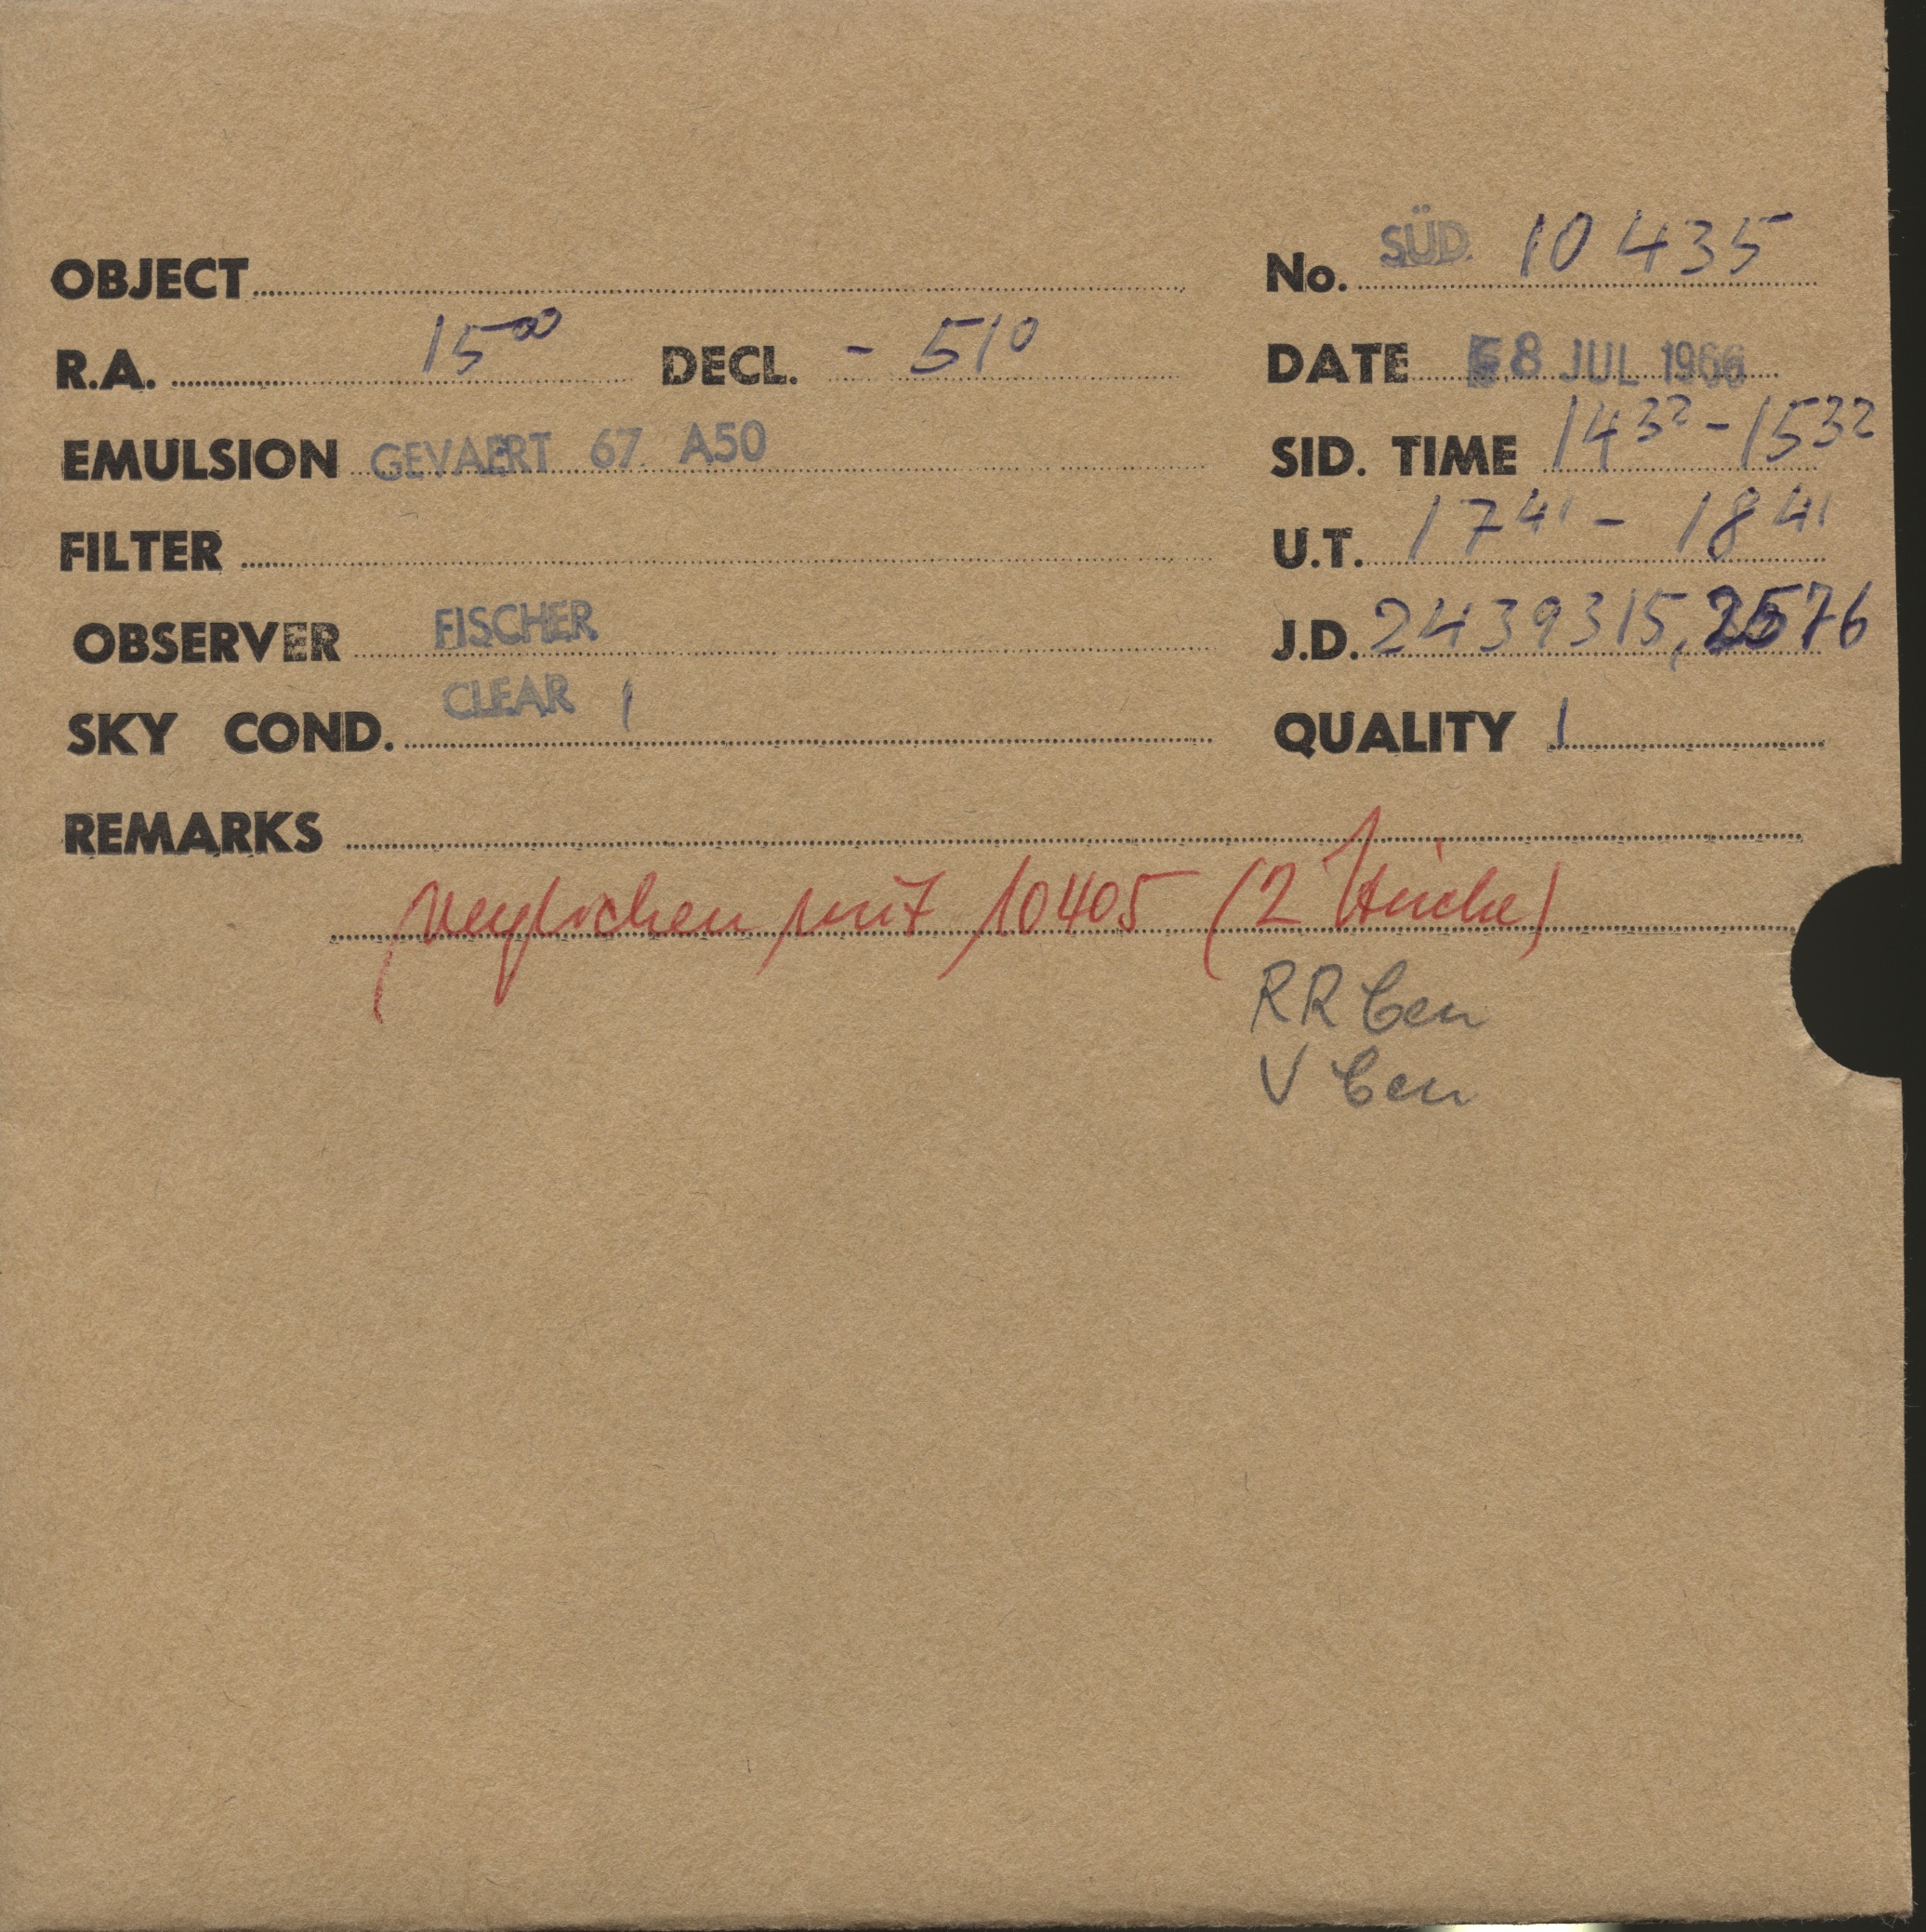 OBJECT
No. SÜD. 10435
R.A. 15⁰⁰ DECL. - 51⁰
DATE 8 JUL 1966
EMULSION GEVAERT 67 A50
SID. TIME 14³² - 15³²
FILTER
U.T. 17⁴¹ - 18⁴¹
OBSERVER FISCHER
J.D. 2439315,2576
SKY COND. CLEAR 1
QUALITY 1
REMARKS
verglichen mit 10405 (2 Striche)
RR Cen
V Cen